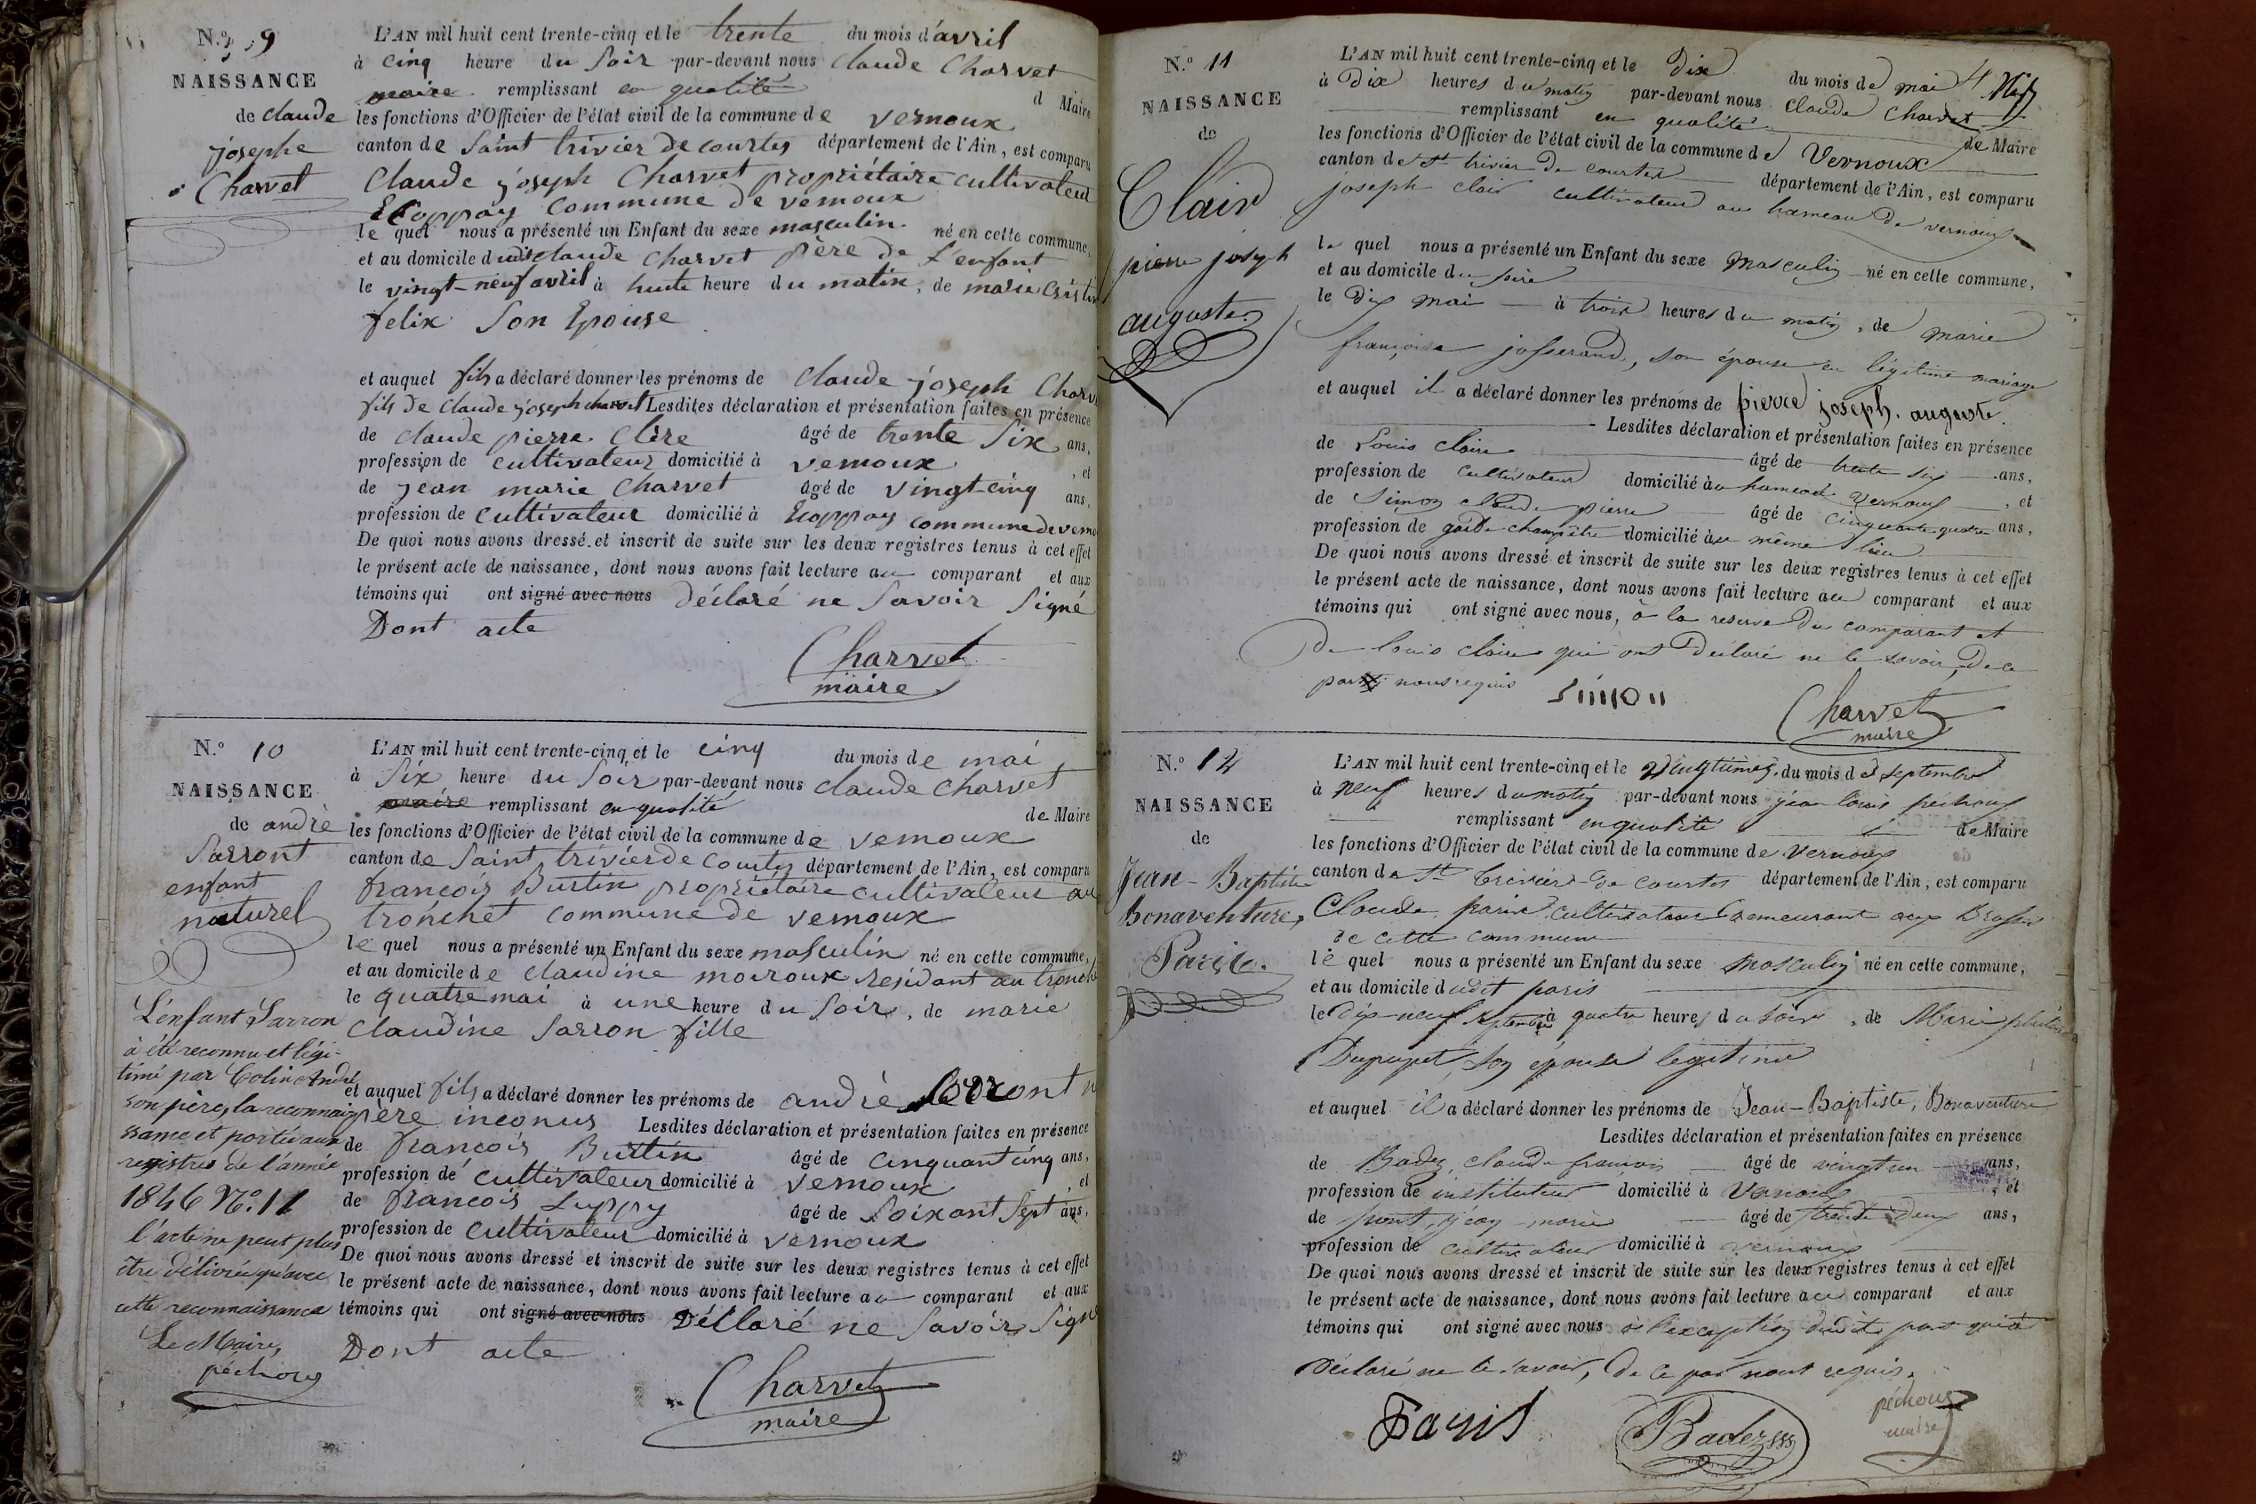 N.º 9
NAISSANCE
de claude
josephe
Charvet
L'AN mil huit cent trente-cinq et le trente du mois d'avril
à cinq heure du soir par-devant nous claude Charvet
maire remplissant en qualité d Maire
les fonctions d'Officier de l'état civil de la commune de vernoux
canton de Saint trivier de courtes département de l'Ain, est comparu
Claude joseph Charvet propriétaire cultivateur
Ecoppay commune de vernoux
le quel nous a présenté un Enfant du sexe masculin né en cette commune,
et au domicile dudit claude Charvet père de L'enfant
le vingt-neuf avril à huite heure du matin, de marie Cristin
felix Son Epouse
et auquel fils a déclaré donner les prénoms de Claude joseph Charv
fils de claude joseph charvet Lesdites déclaration et présentation faites en présence
de claude pierre Clère âgé de trente Six ans,
profession de cultivateur domicilié à vernoux, et
de jean marie Charvet âgé de vingt-cinq ans,
profession de cultivateur domicilié à Ecoppay commune de verno
De quoi nous avons dressé et inscrit de suite sur les deux registres tenus à cet effet
le présent acte de naissance, dont nous avons fait lecture au comparant et aux
témoins qui ont signé avec nous déclaré ne Savoir Signé
Dont acte
Charvet
maire
N.º 10
NAISSANCE
de andrè
Sarront
enfant
naturel
L'enfant Sarron
à été reconnu et légi-
timé par Colin André
son père, la reconnais
sance et portée aux
registres de l'année
1846 Nº. 11
l'acte ne peut plus
être délivrée qu'avec
cette reconnaissance
Le Maire,
péchoux
L'AN mil huit cent trente-cinq et le cinq du mois de mai
à Six heure du Soir par-devant nous claude Charvet
maire remplissant en qualité de Maire
les fonctions d'Officier de l'état civil de la commune de vernoux
canton de Saint trivier de Courtes département de l'Ain, est comparu
francois Burtin propriétaire cultivateur au
tronchet commune de vernoux
le quel nous a présenté un Enfant du sexe masculin né en cette commune,
et au domicile de claudine moiroux residant au tronch
le quatre mai à une heure du Soir, de marie
Claudine Sarron fille
et auquel fils a déclaré donner les prénoms de andrè Sarront
père inconus Lesdites déclaration et présentation faites en présence
de francois Burtin âgé de cinquant cinq ans,
profession de cultivateur domicilié à vernoux, et
de francois Luppy âgé de Soixant Sept ans,
profession de cultivateur domicilié à vernoux
De quoi nous avons dressé et inscrit de suite sur les deux registres tenus à cet effet
le présent acte de naissance, dont nous avons fait lecture au comparant et aux
témoins qui ont signé avec nous Déclaré ne Savoir Signé
Dont acte
Charvet
maire
N.º 11
NAISSANCE
de
Clair
pierre joseph
auguste
L'AN mil huit cent trente-cinq et le dix du mois de mai
à dix heures du matin par-devant nous Claude Charvet
remplissant en qualité de Maire
les fonctions d'Officier de l'état civil de la commune de Vernoux
canton de St trivier de courtes département de l'Ain, est comparu
joseph clair cultivateur au hameau de vernoux
le quel nous a présenté un Enfant du sexe masculin né en cette commune,
et au domicile du père
le dix mai à trois heures du matin, de marie
françoise josserand, son épouse en légitime mariage
et auquel il a déclaré donner les prénoms de pierre joseph auguste
Lesdites déclaration et présentation faites en présence
de Louis Claire âgé de trente six ans,
profession de cultivateur domicilié au hameau Vernoux, et
de Simon claude pierre âgé de cinquante quatre ans,
profession de garde champêtre domicilié au même lieu
De quoi nous avons dressé et inscrit de suite sur les deux registres tenus à cet effet
le présent acte de naissance, dont nous avons fait lecture au comparant et aux
témoins qui ont signé avec nous, à la reserve du comparant et
De louis claire qui ont Déclaré ne le savoir, De ce
par nous requis
Simon
Charvet
maire
N.º 12
NAISSANCE
de
Jean-Baptiste
Bonaventure,
Paris.
L'AN mil huit cent trente-cinq et le vingtunieme du mois de septembre
à neuf heures du matin par-devant nous jean louis péchoux
remplissant en qualité de Maire
les fonctions d'Officier de l'état civil de la commune de Vernoux
canton de St trivier de courtes département de l'Ain, est comparu
Claude paris cultivateur demeurant aux
de cette commune
le quel nous a présenté un Enfant du sexe masculin né en cette commune,
et au domicile dudit paris
le dix-neuf septembre à quatre heures du soir, de Marie
Dupupet, son épouse légitime
et auquel il a déclaré donner les prénoms de Jean-Baptiste, Bonaventure
Lesdites déclaration et présentation faites en présence
de Badez claude francois âgé de vingt un ans,
profession de instituteur domicilié à Vernoux, et
de pont, jean-marie âgé de trente deux ans,
profession de cultivateur domicilié à vernoux
De quoi nous avons dressé et inscrit de suite sur les deux registres tenus à cet effet
le présent acte de naissance, dont nous avons fait lecture au comparant et aux
témoins qui ont signé avec nous à l'exception dudit pont qui a
Déclaré ne le savoir, De ce par nous requis.
Paris
Badez
péchoux
maire